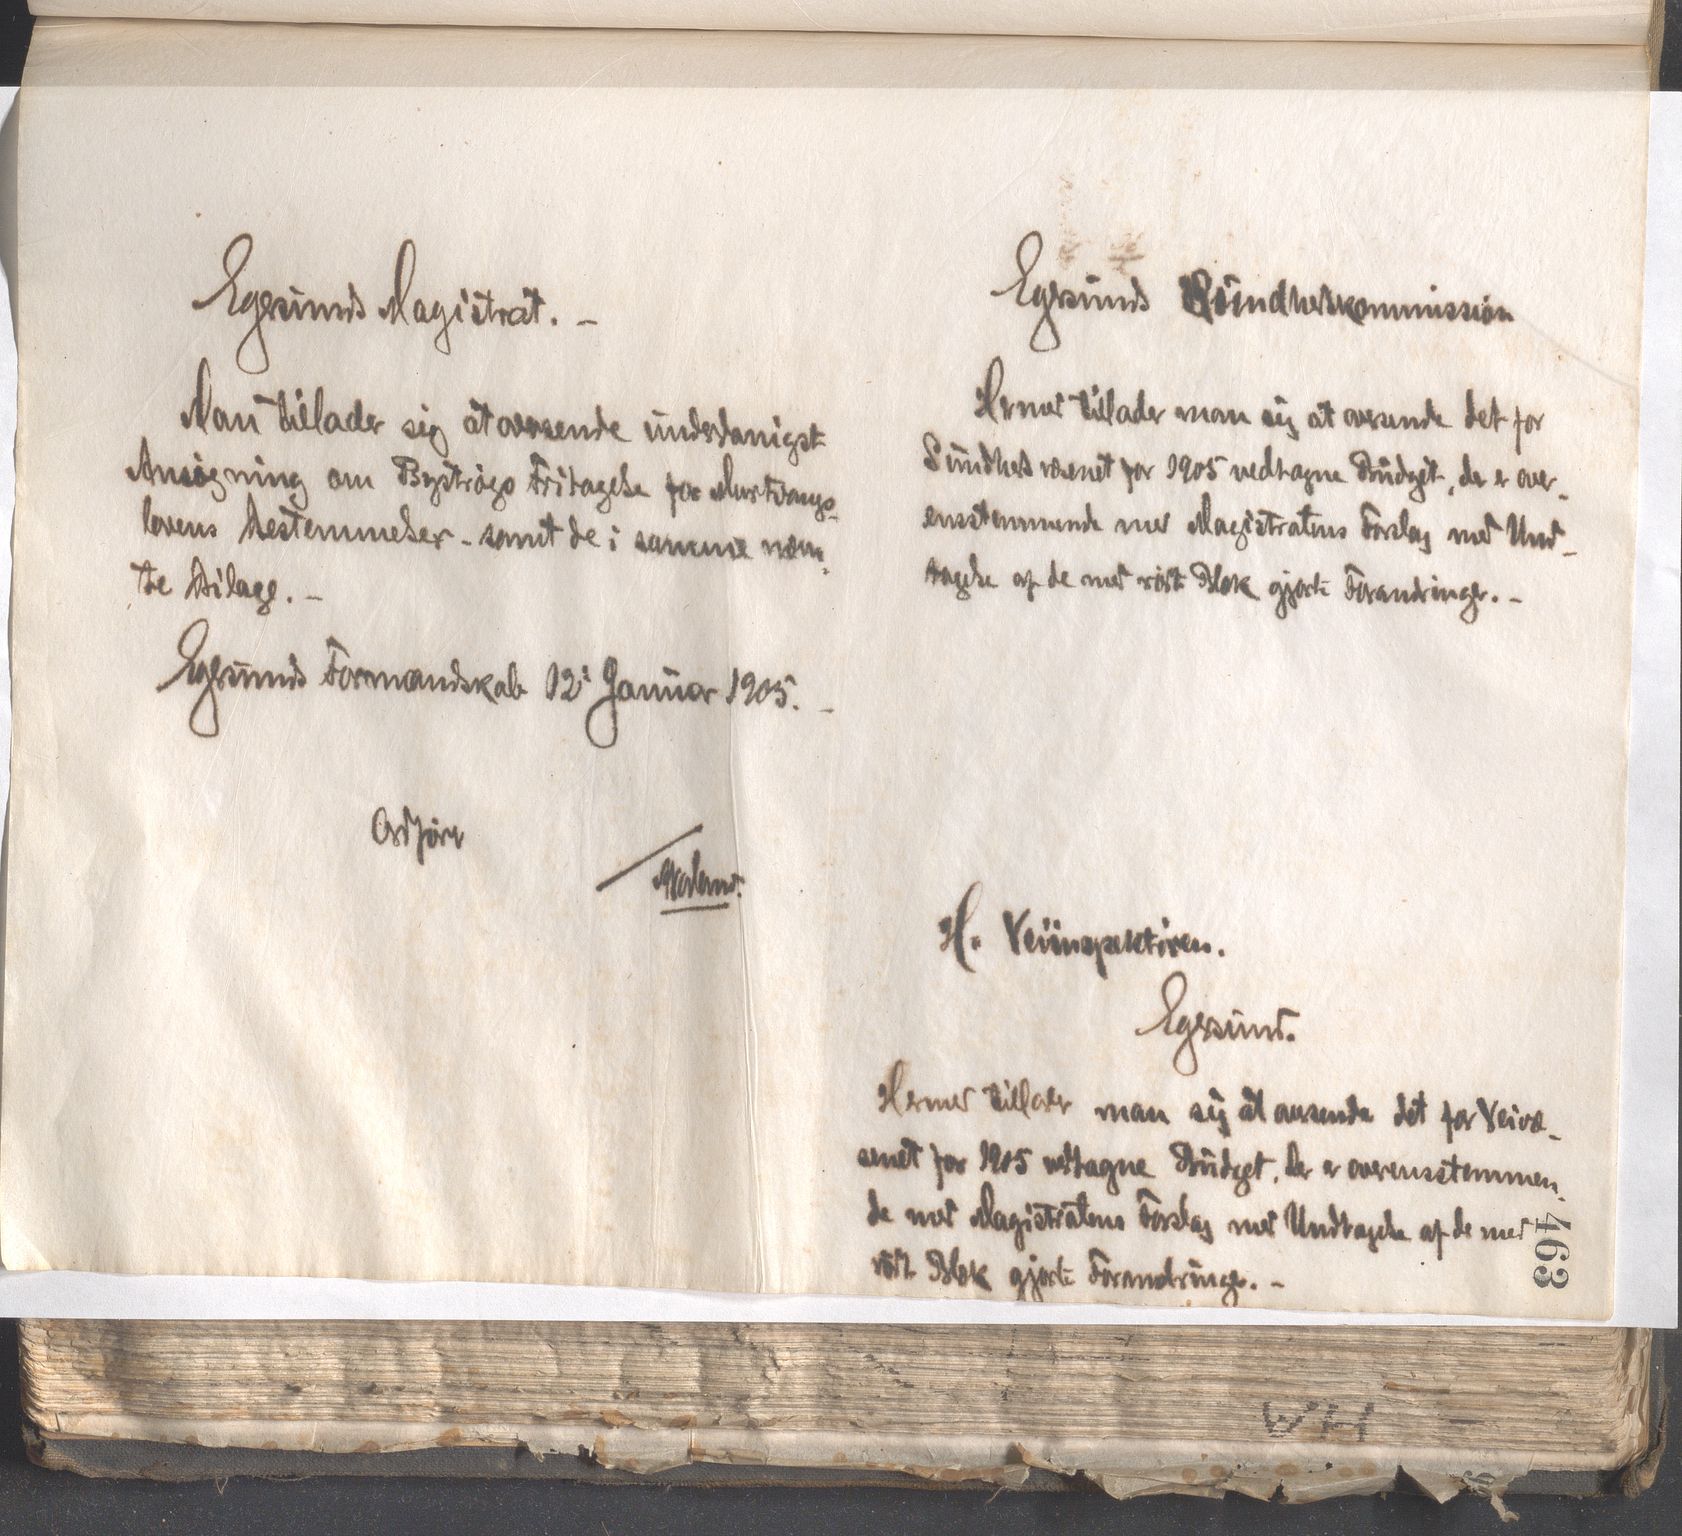 Egersunds Magistrat. –
Man tillader sig at oversende underdanigst
Ansøgning om Bystrøgs Fritagelse for Murtvangs-
lovens Bestemmelser – samt de i samme nævn-
te Bilage. –
Egersunds Formandskab 12: Januar 1905. –
Ordfører
Egersunds Sundhedskommission
Hermed tillader man sig at oversende det for
Sundhedsvæsenet for 1905 vedtagne Budget, der er over-
ensstemmende med Magistratens Forslag med Und-
tagelse af de med rødt Blæk gjorte Forandringer. –
H. Veiinspektøren.
Egersund.
Hermed tillader man sig at oversende det for Veivæ-
senet for 1905 vedtagne Budget, der er overensstemmen-
de med Magistratens Forslag med Undtagelse af de med
rødt Blæk gjorte Forandringer. –
463
WH